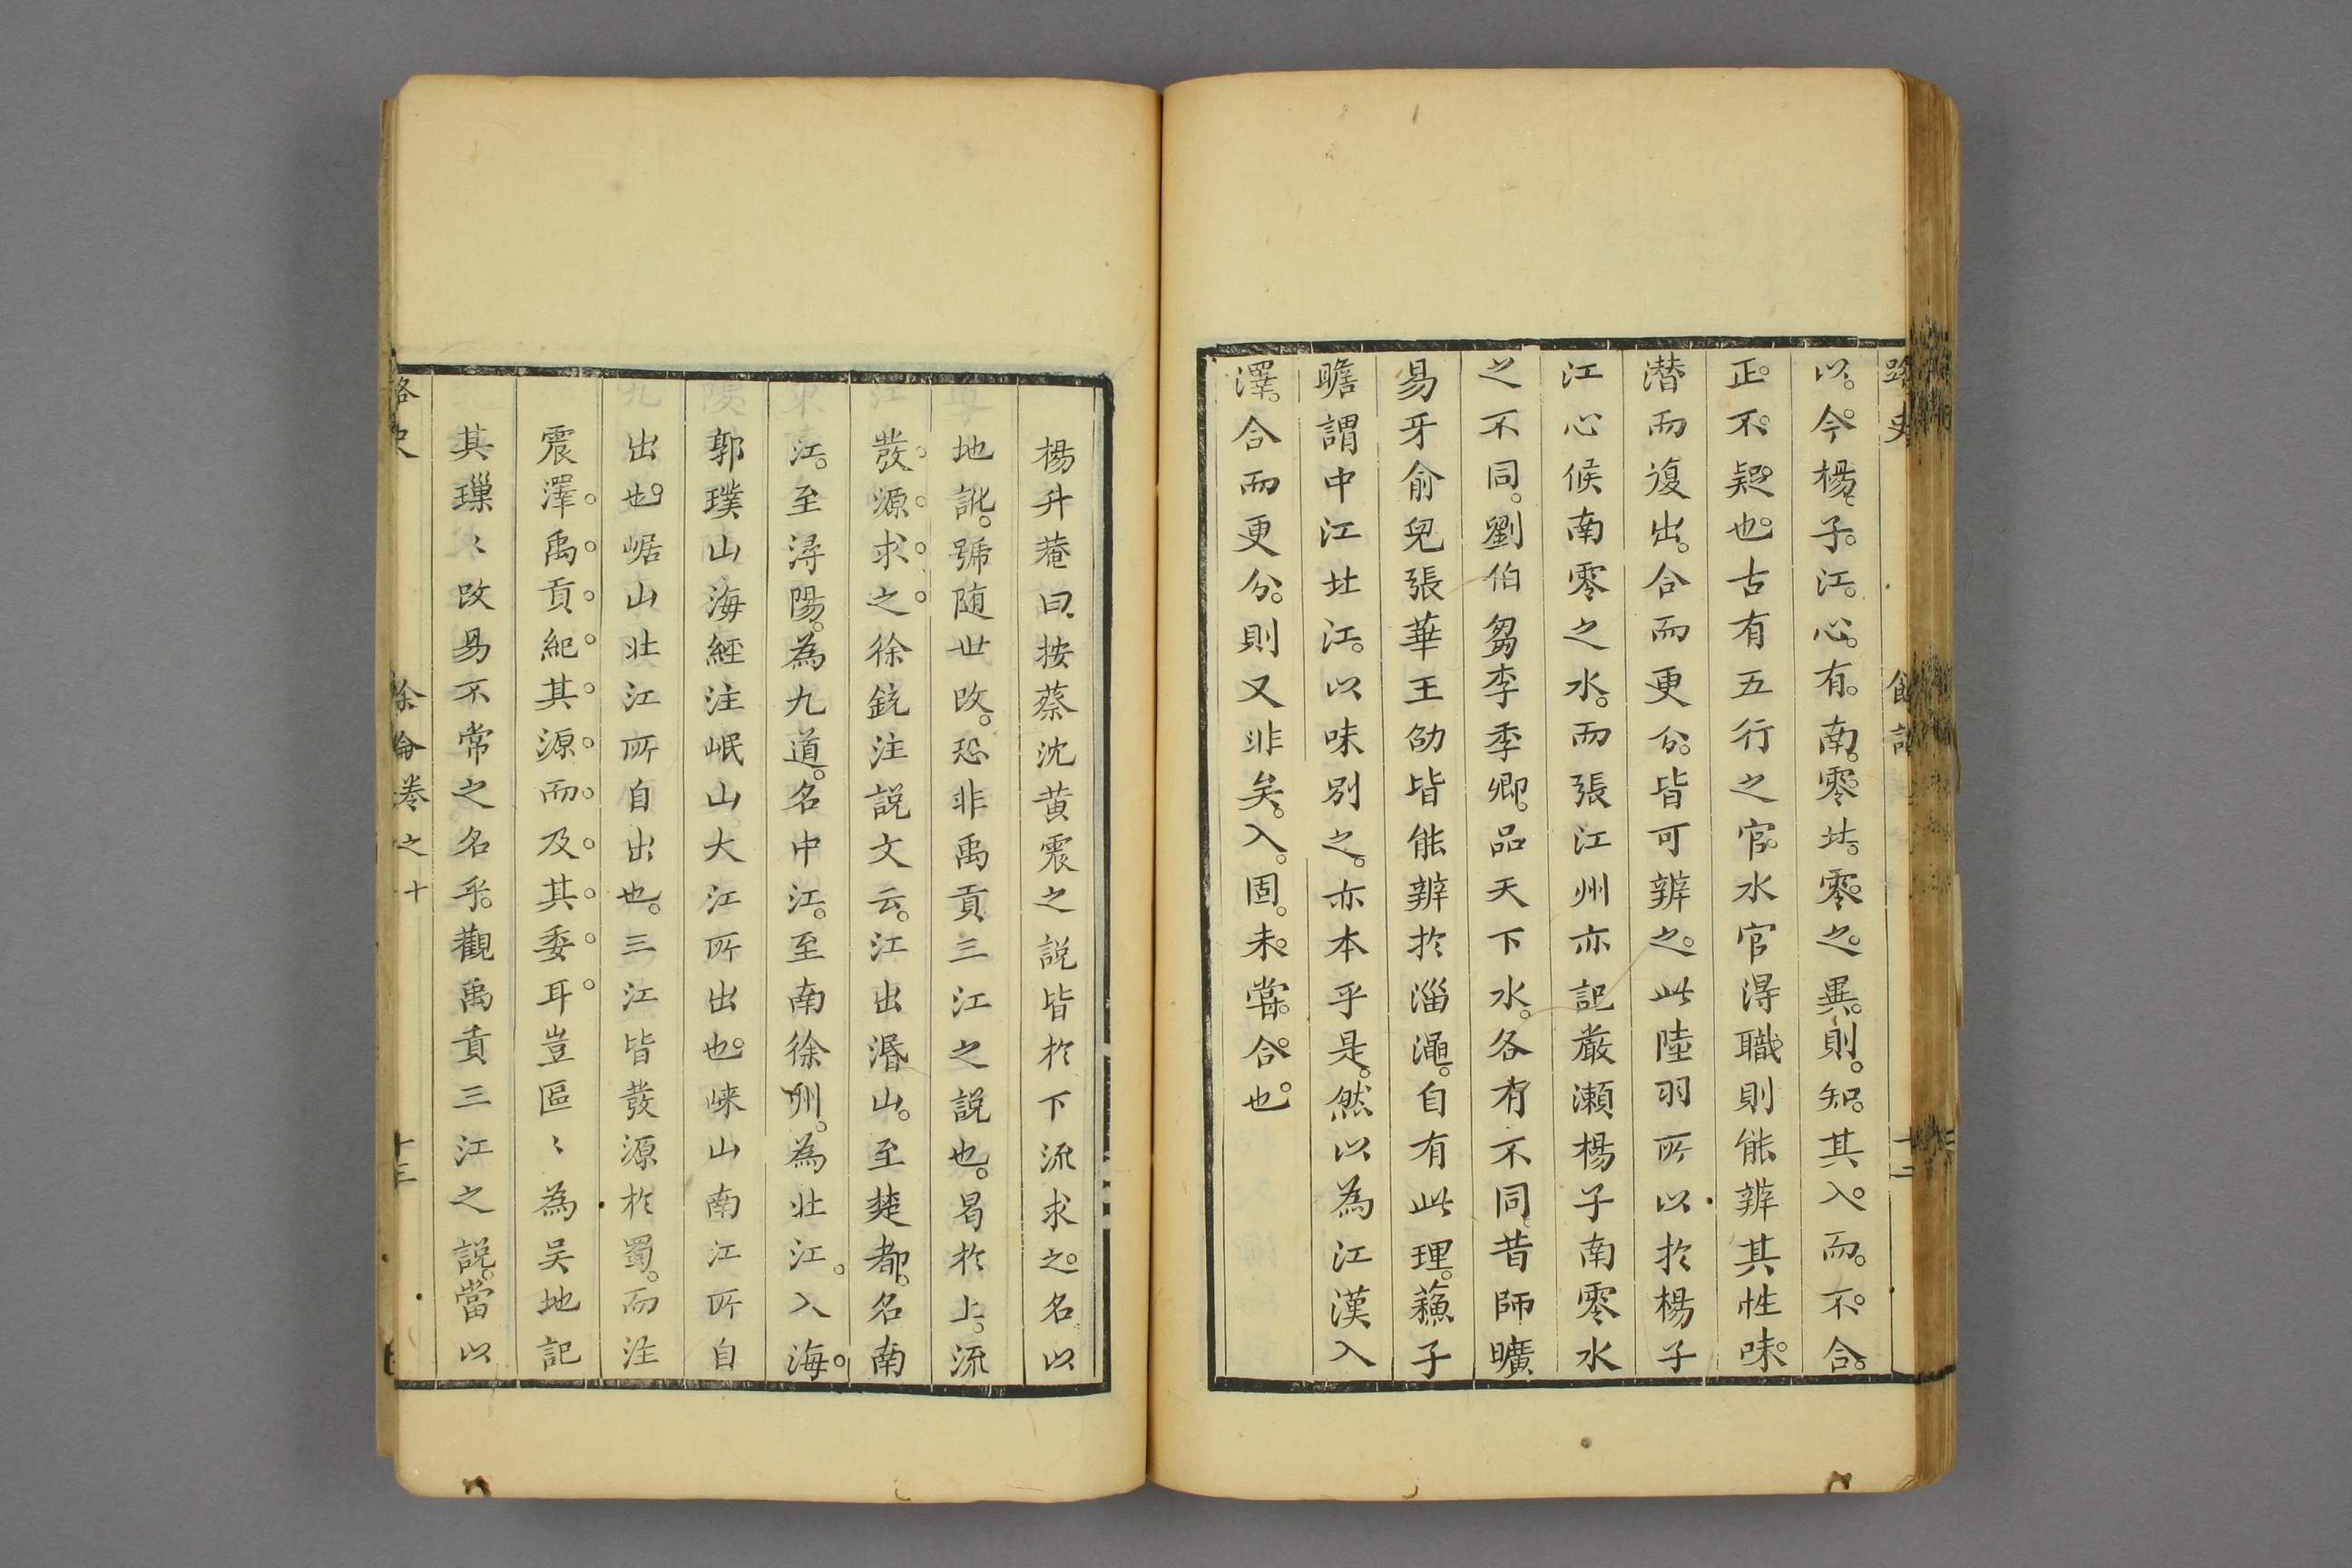 以今楊子江心有南零北零之異則知其入而不合
正不疑也古有五行之官水官得職則能辨其性味
潛而復出合而更分皆可辨之此陸羽所以於楊子
江心候南零之水而張江州亦記嚴瀨楊子南零水
之不同劉伯芻李季卿品天下水各有不同昔師曠
易牙俞兒張華王劭皆能辨於淄澠自有此理蘓子
瞻謂中江北江以味别之亦本乎是然以為江漢入
澤合而更分則又非矣入固未嘗合也
楊升菴曰按蔡沈黄震之説皆於下流求之名以
地訛號随世改恐非禹貢三江之説也曷於上流
發源求之徐鉉注説文云江出㟭山至楚都名南
江至潯陽為九道名中江至南徐州為北江入海
郭璞山海經注岷山大江所出也崍山南江所自
出也崌山北江所自出也三江皆發源於蜀而注
震澤禹貢紀其源而及其委耳豈區〻為吴地記
其瑣〻改易不常之名乎觀禹貢三江之説當以
路史
餘論卷之十
十三